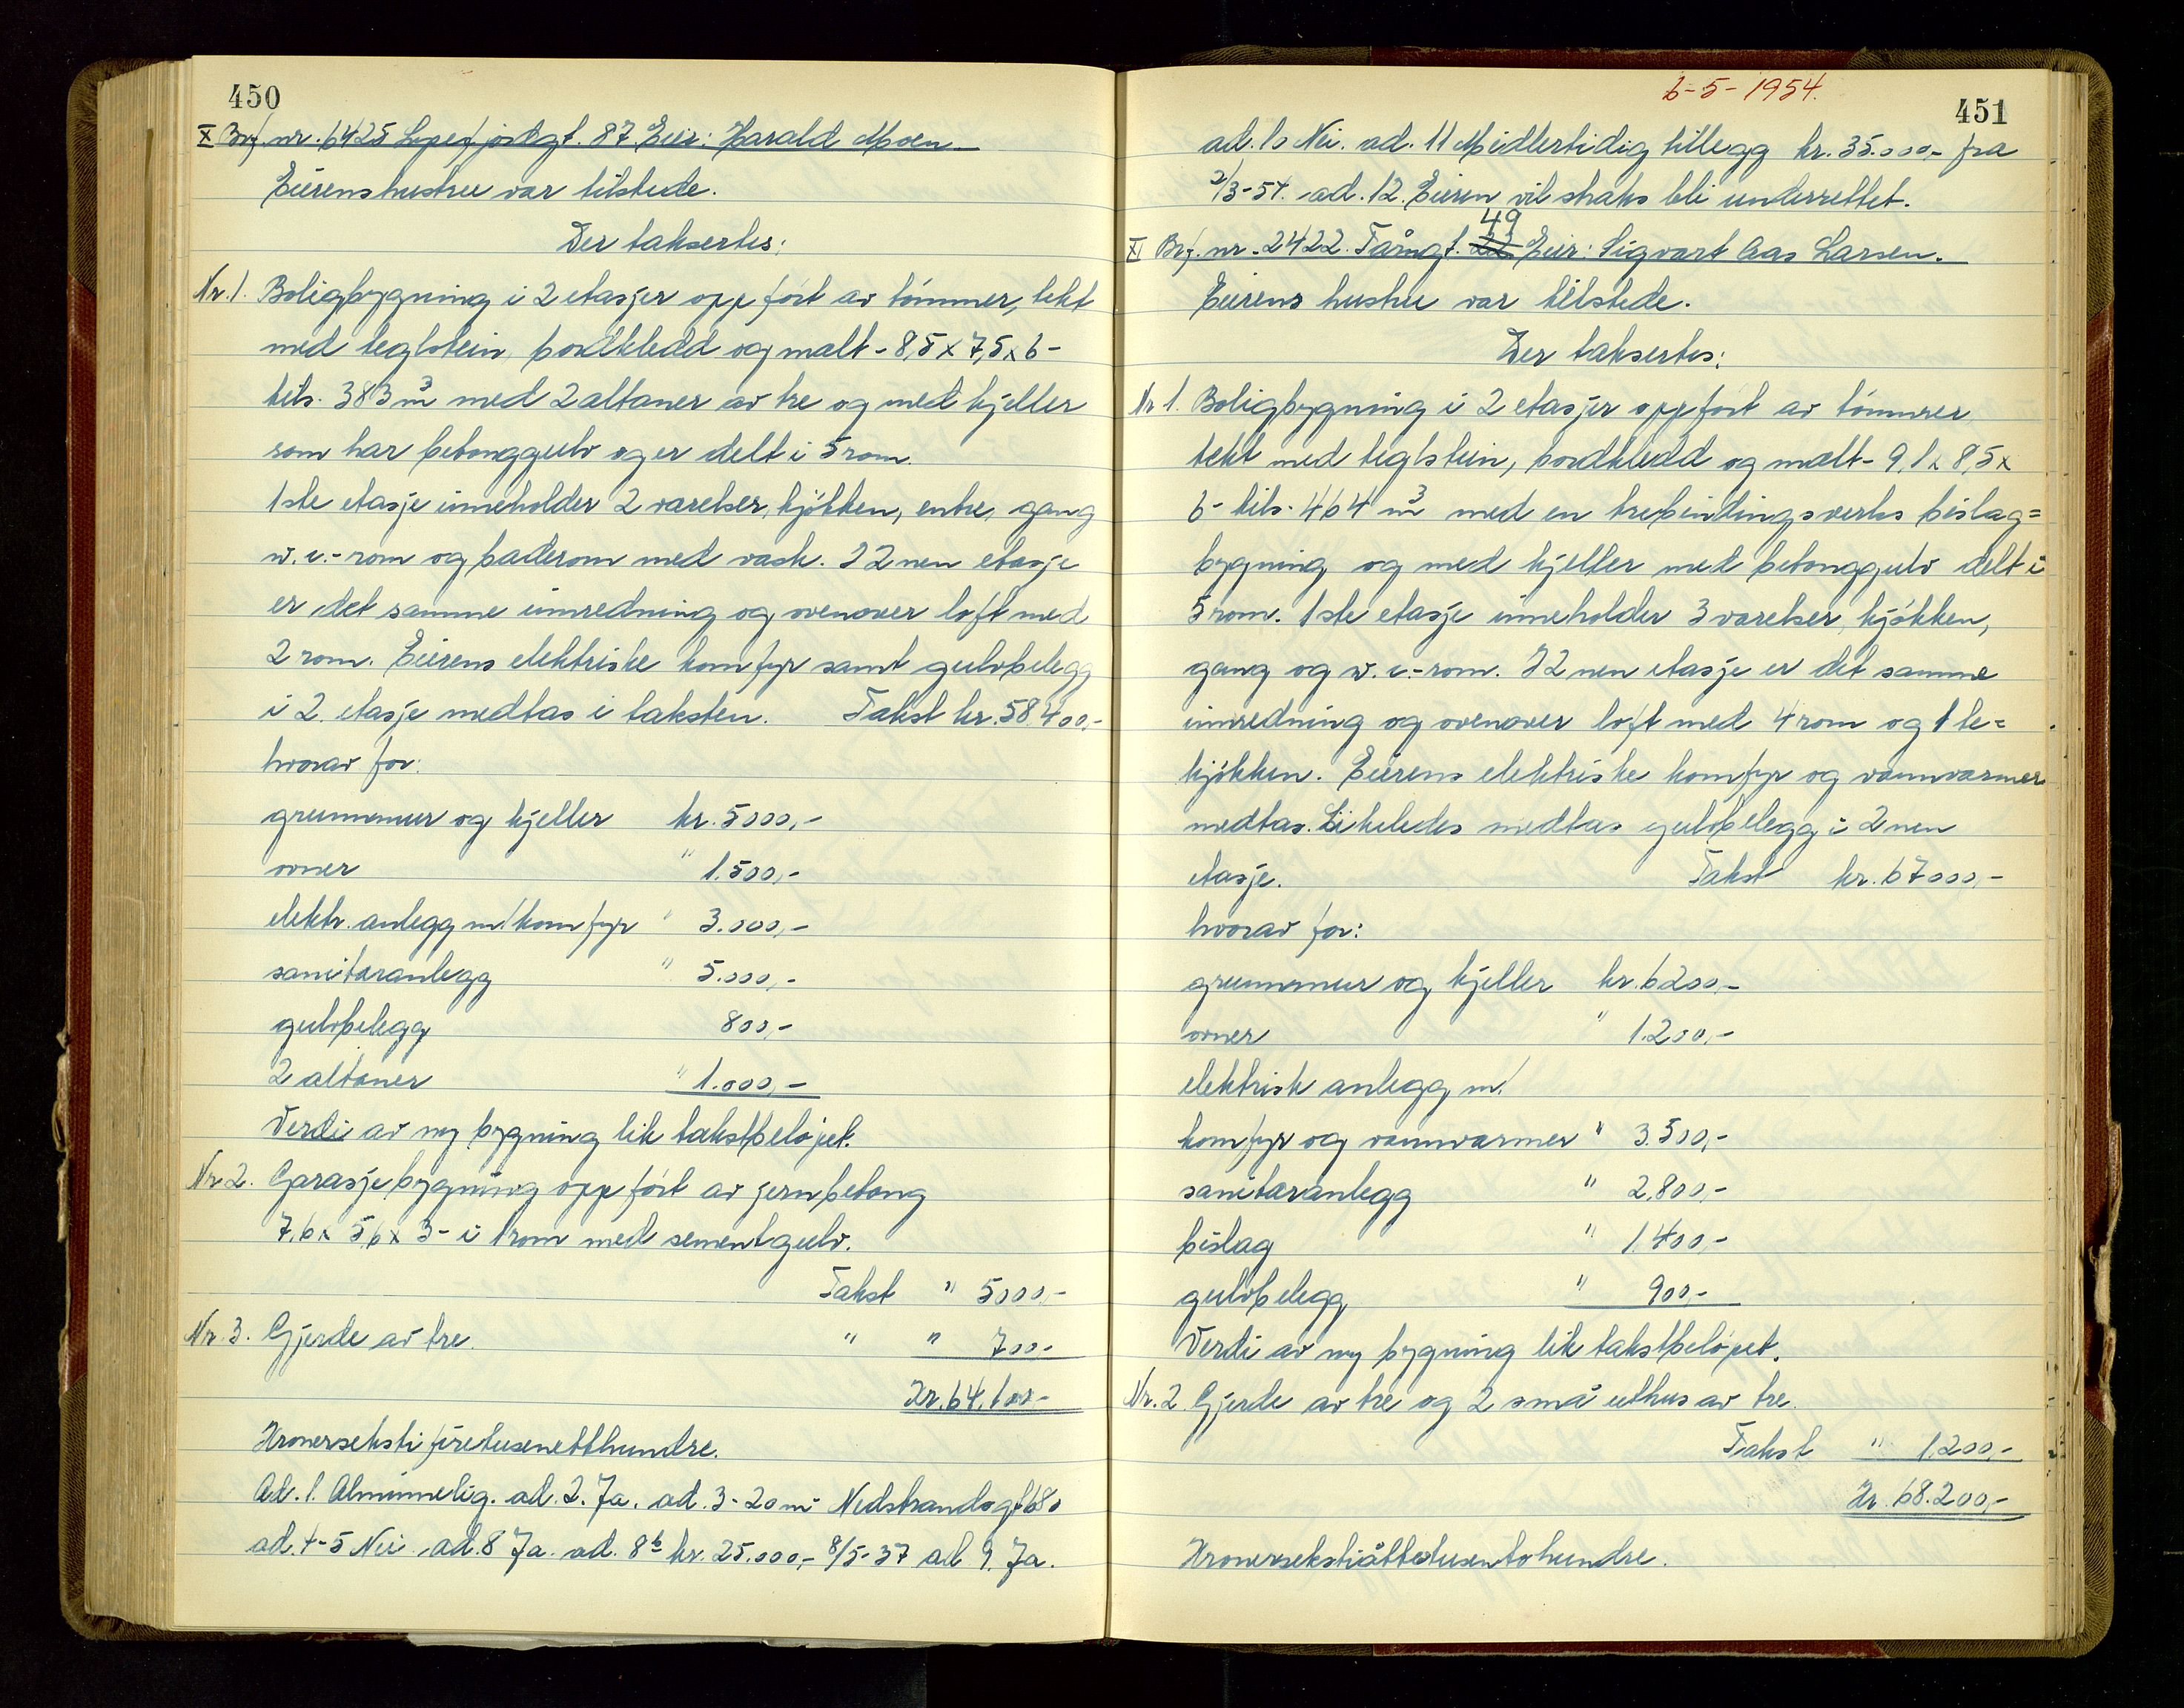 450
X Brf. nr. 6425 jordegt. 87 Eier: Harald Moen
Eierens hustru var tilstede.
Der taksertes:
Nr. 1. Boligbygning i 2 etasjer oppført av tømmer, tekt
med teglstein, bordkledd og malt - 8,5 x 7,5 x 6 -
tils. 383 m3 med 2 altaner av tre og med kjeller
som har betonggulv og er delt i 5 rom.
1ste etasje inneholder 2 værelser, kjøkken, entre, gang
w.c.-rom og baderom med vask. I 2nen etasje
er det samme innredning og ovenover loft med
2 rom. Eierens elektriske komfyr samt gulvbelegg
i 2. etasje medtas i taksten. Takst kr. 58.400,-
hvorav for:
grunnmur og kjeller kr. 5000,-
ovner " 1.500,-
elektr. anlegg m/komfyr " 3.000,-
sanitæranlegg " 5.000,-
gulvbelegg 800,-
2 altaner " 1.000,-
Verdi av ny bygning lik takstbeløpet.
Nr. 2. Garasjebygning oppført av jernbetong
7,6 x 5,6 x 3 - i 1 rom med sementgulv.
Takst " 5000,-
Nr. 3. Gjerde av tre. " " 700,-
Kr. 64.100,-
Kronersekstifiretusenetthundre.
Ad. 1. Alminnelig. ad. 2. Ja. ad. 3 - 20 m Nedstrandsgt. 680
ad. 4-5 Nei. ad. 8 Ja. ad. 8b kr. 25.000,- 8/5-37 ad 9. Ja.
6-5-1954.
451
ad. 10 Nei. ad. 11 Midlertidig tillegg kr. 35.000,- fra
2/3-54. ad. 12. Eieren vil straks bli underrettet.
49
XI Brf. nr. 2422. Tårngt. 22 Eier: Sigvart Aas Larsen.
Eierens hustru var tilstede.
Der taksertes:
Nr. 1. Boligbygning i 2 etasjer oppført av tømmer
tekt med teglstein, bordkledd og malt - 9,1 x 8,5 x
6 - tils. 464 m3 med en trebindingsverks bislag=
bygning og med kjeller med betonggulv delt i
5 rom. 1ste etasje inneholder 3 værelser, kjøkken,
gang og w.c.-rom. I 2nen etasje er det samme
innredning og ovenover loft med 4 rom og 1 te=
kjøkken. Eierens elektriske komfyr og vannvarmer
medtas. Likeledes medtas gulvbelegg i 2nen
etasje. Takst kr. 67000,-
hvorav for:
grunnmur og kjeller kr. 6200,-
ovner " 1.200,-
elektrisk anlegg m/
komfyr og vannvarmer " 3.500,-
sanitæranlegg " 2.800,-
bislag " 1.400,-
gulvbelegg " 900,-
Verdi av ny bygning lik takstbeløpet.
Nr. 2. Gjerde av tre og 2 små uthus av tre.
Takst " 1.200,-
Kr. 68.200,-
Kronersekstiåttetusentohundre.